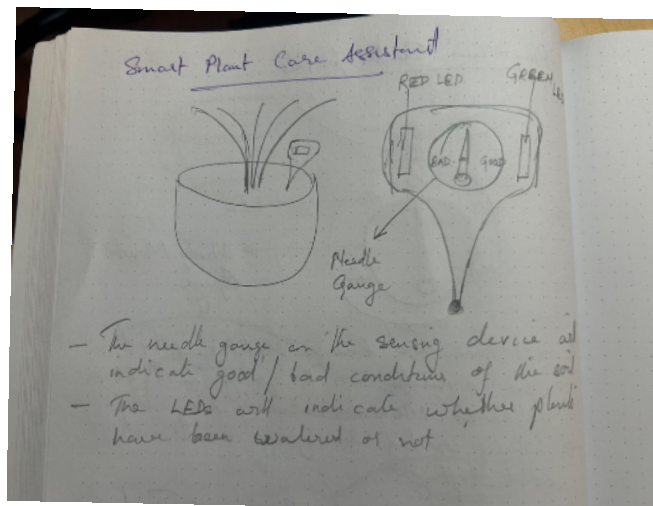 Smart Plant Care Assistant
RED LED
GREEN LED
BAD
GOOD
Needle
Gauge
- The needle gauge on the sensing device will
indicate good/bad conditions of the soil
- The LEDs will indicate whether plants
have been watered or not